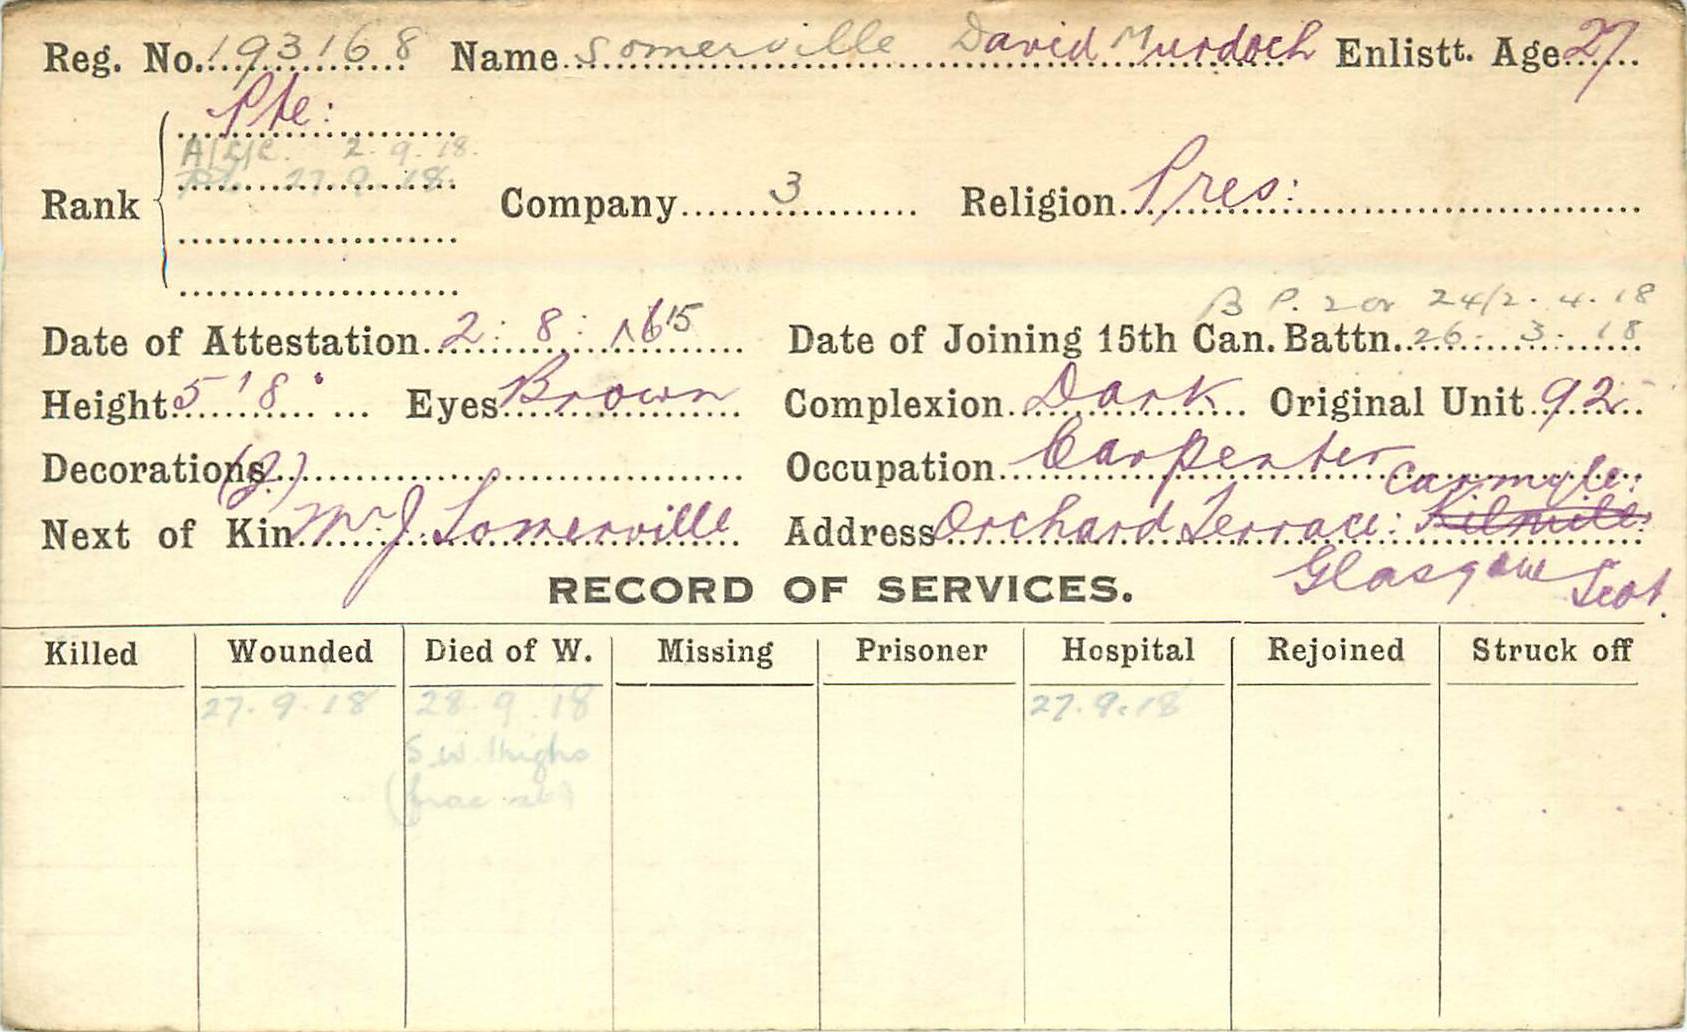 Reg. No. 193168 Name Somerville David Murdoch Enlistt. Age 27
Pte:
A/L/C. 2.9.18.
Pte 27.9.18.
Rank Company 3 Religion Pres:
B P. 2 or 24/2.4.18
Date of Attestation 2:8:1615 Date of Joining 15th Can. Battn. 26.3.18
Height 5'8" Eyes Brown Complexion Dark Original Unit 92
Decorations Occupation Carpenter
(J.) Carmyle:
Next of Kin Mr J. Somerville Address Orchard Terrace:
Glasgow Scot.
RECORD OF SERVICES.
Killed Wounded Died of W. Missing Prisoner Hospital Rejoined Struck off
27.9.18 28.9.18 27.9.18
S.W. thighs